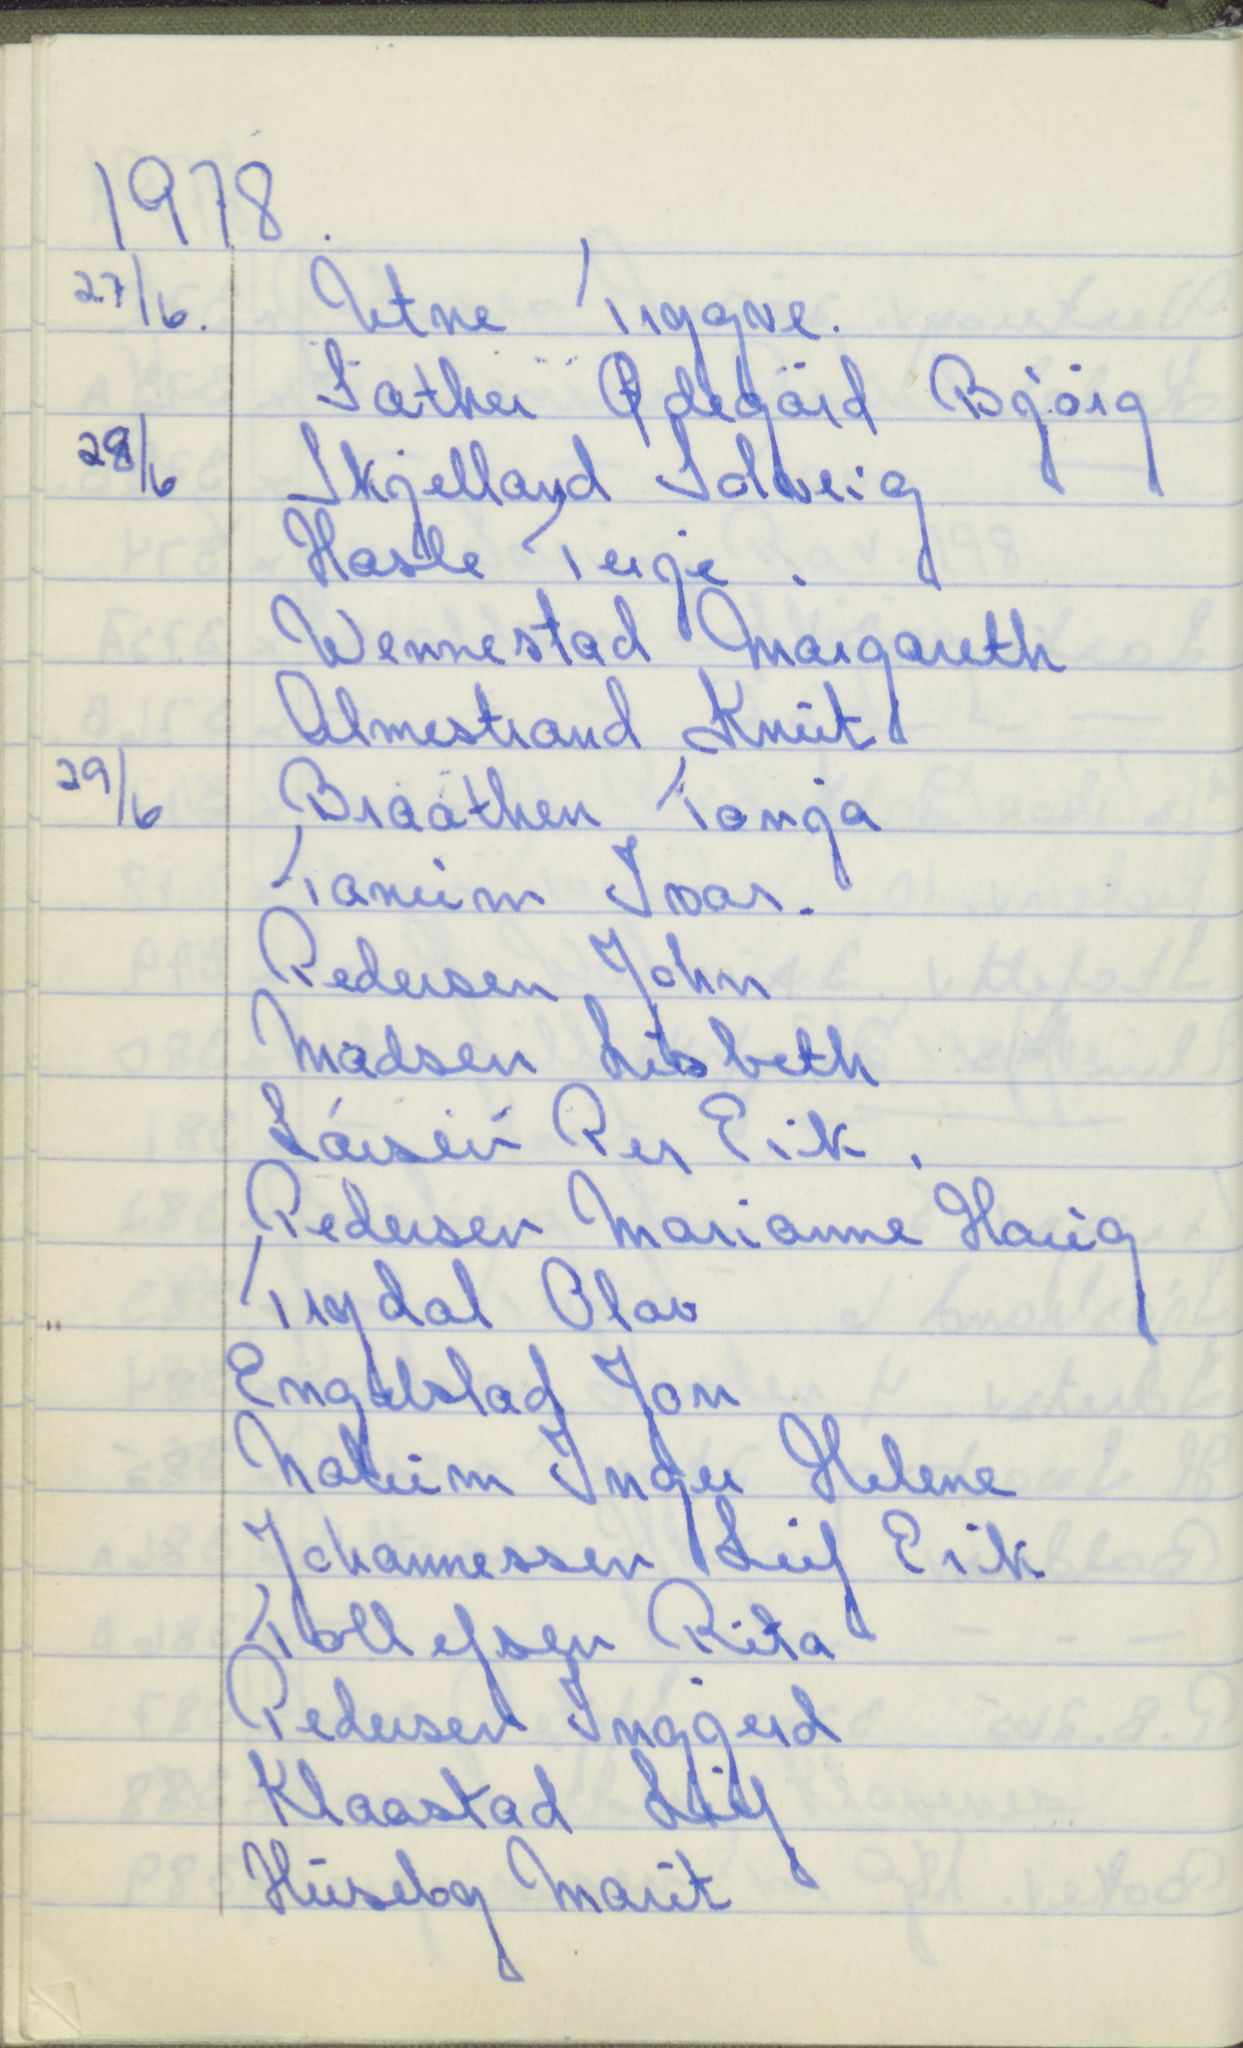 1978.
27/6. Utne Tryggve.
Sæther Ødegård Bjørg
28/6 Skjelland Solveig
Hasle Terje.
Wennestad Margareth
Almestrand Knut
29/6 Braathen Tonja
Tanum Ivar.
Pedersen John
Madsen Lisbeth
Larsen Per Erik.
Pedersen Marianne Haug
Trydal Olav
Engebstad Jon
Inger Helene
Johannessen Leif Erik
Tollefsen Rita
Pedersen Inggjerd
Klaastad Leif
Huseby Marit